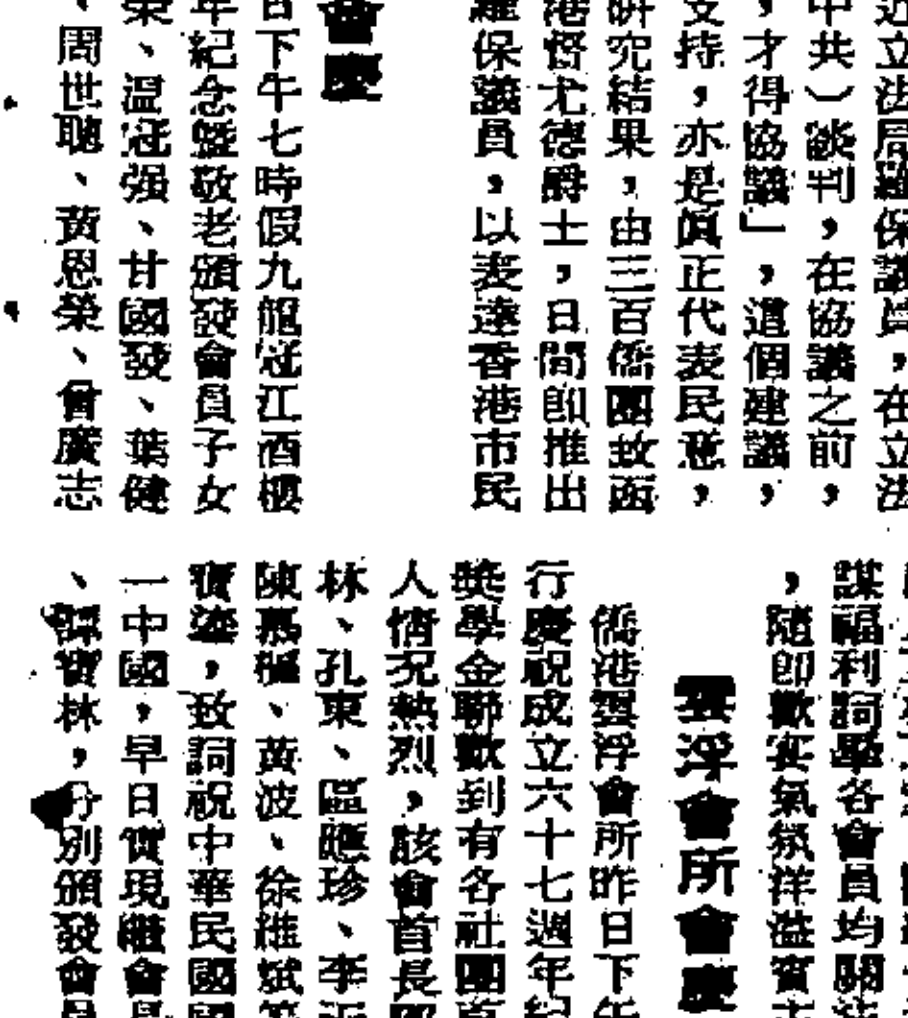 近立法局羅保議員，在立法
中共）談判，在協議之前，
，才得協議」，這個建議，
支持，亦是眞正代表民意，
研究結果，由三百僑團致函
港督尤德爵士，日間卽推出
羅保議員，以表達香港市民
會慶
日下午七時假九龍冠江酒樓
年紀念暨敬老頒發會員子女
榮、溫冠强、甘國發、葉健
、周世聰、黃恩榮、曾廣志
謀福利詞畢各會員均關
，隨卽歡宴氣氛洋溢賓
雲浮會所會慶
僑港雲浮會所昨日下午
行慶祝成立六十七週年紀
獎學金聯歡到有各社團
人情況熱烈，該會首長
林、孔東、區應珍、李
陳、黃波、徐維斌等
寶，致詞祝中華民國國
一中國，早日實現繼會長
、譚寶林，分別頒發會員